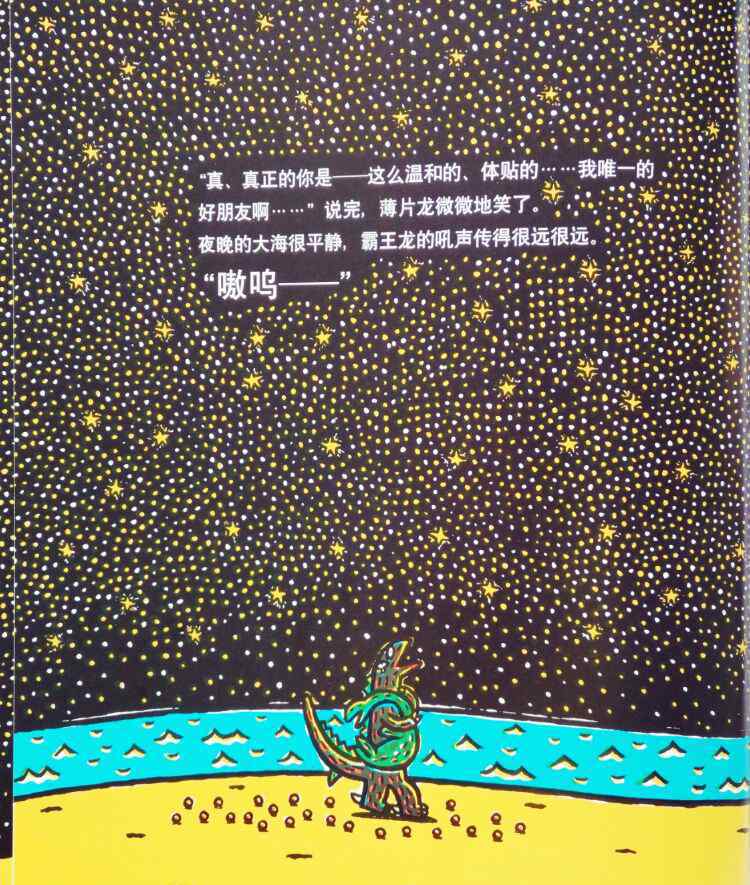 “真、真正的你是——这么温和的、体贴的……我唯一的
好朋友啊……”说完，薄片龙微微地笑了。
夜晚的大海很平静，霸王龙的吼声传得很远很远。
“嗷呜——”